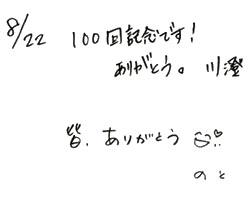 8/22 100回記念です！
ありがとう。川澄
皆、ありがとう
のと